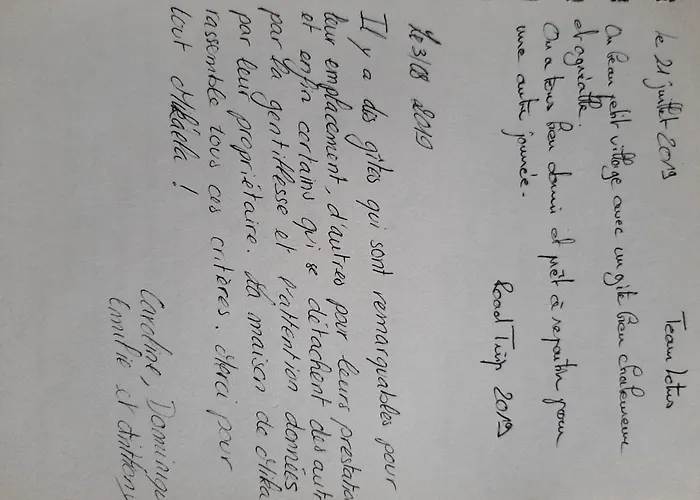 le 21 juillet 2019
Team Lotus
Un beau petit village avec un gîte bien chaleureux
et agréable.
On a tous bien dormi et prêt à repartir pour
une autre journée.
Road Trip 2019
Le 3/08 2019
Il y a des gîtes qui sont remarquables pour
leur emplacement, d'autres pour leurs prestat
et enfin certains qui se détachent des aut
par la gentillesse et l'attention données
par leur propriétaire. La maison de Mika
rassemble tous ces critères. Merci pour
tout Mikaela !
Caroline, Dominiqu
Emilie et Anthony